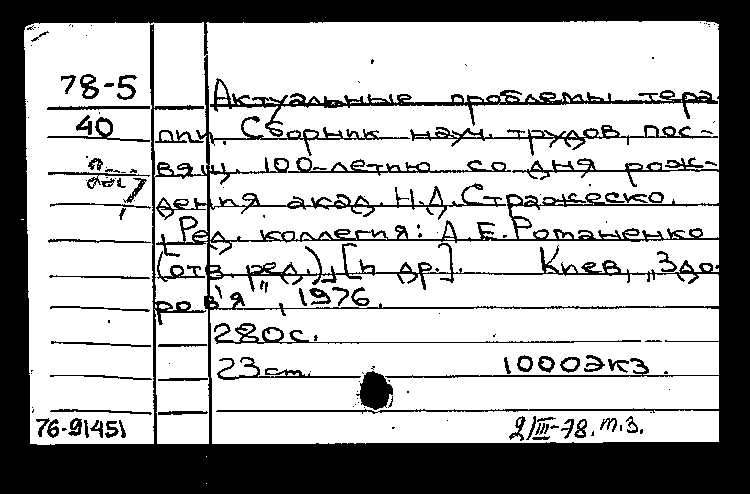 78-5
Актуальные проблемы тера-
40
пии. Сборник науч. трудов, пос-
вящ. 100-летию со дня рож-
дения акад. Н.Д.Стражеско.
Ред. коллегия: А.Е.Романенко
(отв. ред.), [и др.]. Киев, „Здо-
ров'я", 1976.
280с.
23см. 1000экз.
76-91451
2/III-78. т.з.